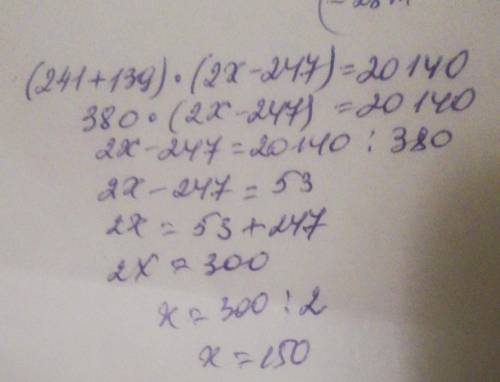 (241+139)•(2x-247)=20140
380•(2x-247)=20140
2x-247=20140:380
2x-247=53
2x=53+247
2x=300
x=300:2
x=150